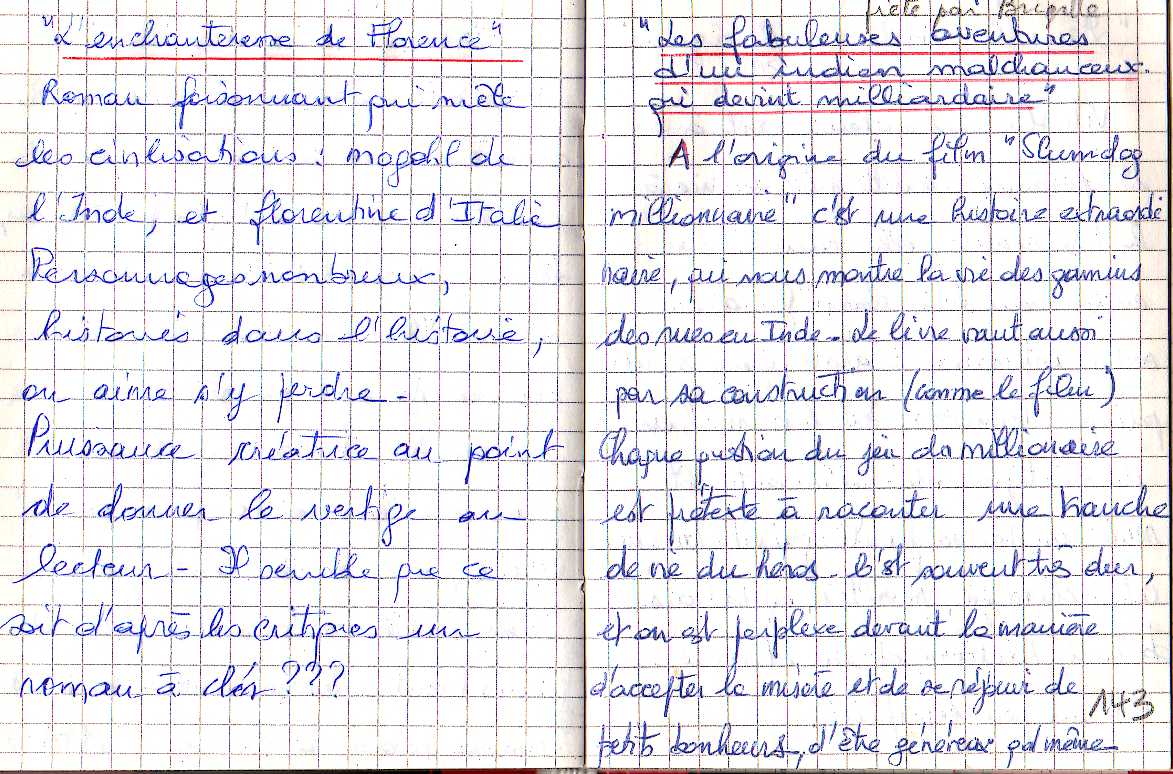 "L'enchanteresse de Florence"
Roman foisonnant qui mêle
les civilisations : mogohl de
l'Inde, et florentine d'Italie
Personnages nombreux,
histoires dans l'histoire,
on aime s'y perdre -
Puissance créatrice au point
de donner le vertige au
lecteur - Il semble que ce
soit d'après les critiques un
roman à clés ???
prêté par Brigitte
"Les fabuleuses aventures
d'un indien malchanceux
qui devint milliardaire"
A l'origine du film "Slumdog
millionnaire" c'est une histoire extraordi
naire, qui nous montre la vie des gamins
des rues en Inde - Le livre vaut aussi
par sa construction (comme le film)
Chaque question du jeu du millionaire
est prétexte à raconter une tranche
de vie du héros - C'est souvent très dur,
et on est perplexe devant la manière
d'accepter la misère et de se réjouir de
petits bonheurs, d'être généreux qd même
143